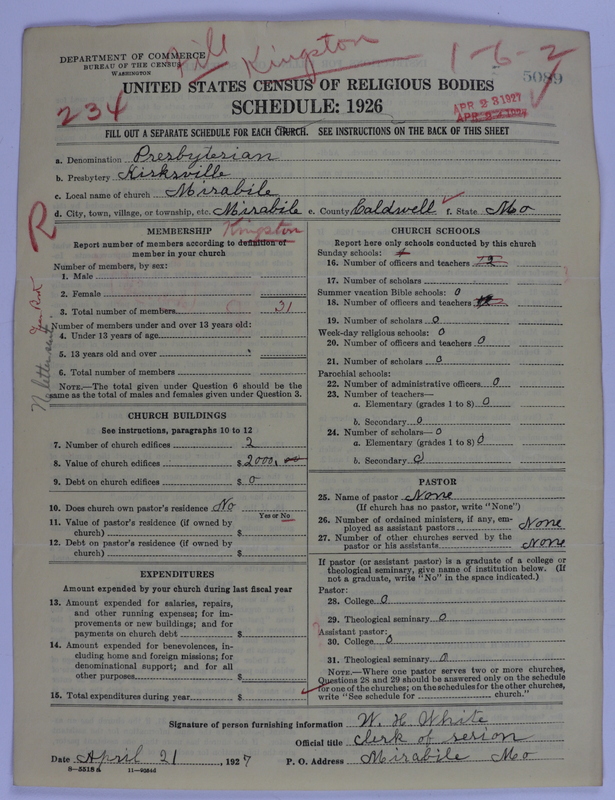 Fill Kingston 1-6-2
DEPARTMENT OF COMMERCE
BUREAU OF THE CENSUS
WASHINGTON
5089
UNITED STATES CENSUS OF RELIGIOUS BODIES
234
SCHEDULE: 1926
APR 23 1927
FILL OUT A SEPARATE SCHEDULE FOR EACH CHURCH. SEE INSTRUCTIONS ON THE BACK OF THIS SHEET
a. Denomination Presbyterian
b. Presbytery Kirksville
c. Local name of church Mirabile
d. City, town, village, or township, etc. Mirabile e. County Caldwell f. State Mo
R
Kingston
MEMBERSHIP
Report number of members according to definition of
member in your church
Number of members, by sex:
1. Male
2. Female
3. Total number of members 31
Number of members under and over 13 years old:
4. Under 13 years of age
5. 13 years old and over
6. Total number of members
NOTE.—The total given under Question 6 should be the
same as the total of males and females given under Question 3.
CHURCH BUILDINGS
See instructions, paragraphs 10 to 12
7. Number of church edifices 2
8. Value of church edifices $ 2000.
9. Debt on church edifices $ 0
10. Does church own pastor's residence No
Yes or No
11. Value of pastor's residence (if owned by
church) $
12. Debt on pastor's residence (if owned by
church) $
EXPENDITURES
Amount expended by your church during last fiscal year
13. Amount expended for salaries, repairs,
and other running expenses; for im-
provements or new buildings; and for
payments on church debt $
14. Amount expended for benevolences, in-
cluding home and foreign missions; for
denominational support; and for all
other purposes $
15. Total expenditures during year $
CHURCH SCHOOLS
Report here only schools conducted by this church
Sunday schools:
16. Number of officers and teachers
17. Number of scholars
Summer vacation Bible schools: 0
18. Number of officers and teachers
19. Number of scholars 0
Week-day religious schools: 0
20. Number of officers and teachers 0
21. Number of scholars 0
Parochial schools:
22. Number of administrative officers 0
23. Number of teachers—
a. Elementary (grades 1 to 8) 0
b. Secondary 0
24. Number of scholars— 0
a. Elementary (grades 1 to 8) 0
b. Secondary 0
PASTOR
25. Name of pastor None
(If church has no pastor, write "None")
26. Number of ordained ministers, if any, em-
ployed as assistant pastors None
27. Number of other churches served by the
pastor or his assistants None
If pastor (or assistant pastor) is a graduate of a college or
theological seminary, give name of institution below. (If
not a graduate, write "No" in the space indicated.)
Pastor:
28. College 0
29. Theological seminary 0
Assistant pastor:
30. College 0
31. Theological seminary 0
NOTE.—Where one pastor serves two or more churches,
Questions 28 and 29 should be answered only on the schedule
for one of the churches; on the schedules for the other churches,
write "See schedule for church."
Signature of person furnishing information W. H. White
Official title Clerk of sesion
Date April 21, 1927 P. O. Address Mirabile Mo
8—5518 A